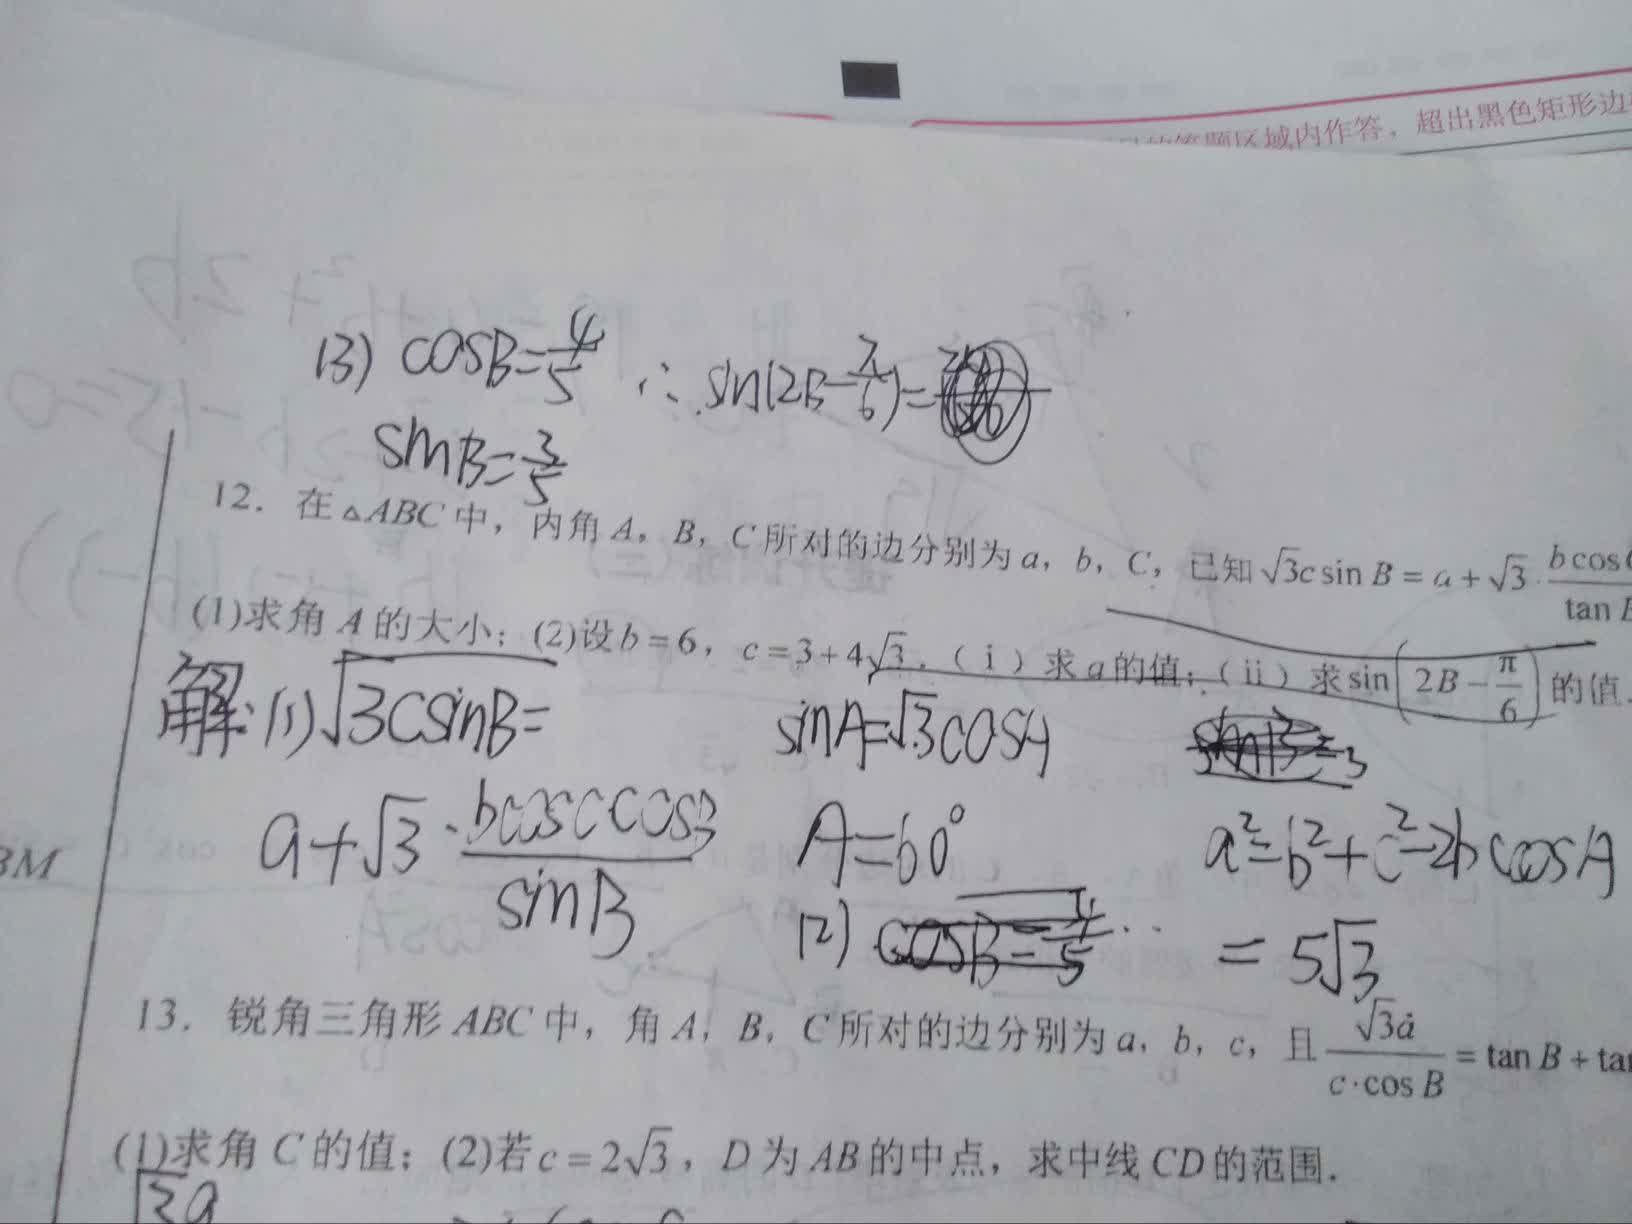 的答题区域内作答，超出黑色矩形边
(3) cosB=4/5 ∴ sin(2B-π/6)=
sinB=3/5
12. 在△ABC中，内角A，B，C所对的边分别为a，b，C，已知√3csinB=a+√3·bcosC/tanB
(1)求角A的大小；(2)设b=6，c=3+4√3，（ⅰ）求a的值；（ⅱ）求sin(2B-π/6)的值.
解：(1)√3csinB=
a+√3·bcosCcosB/sinB
sinA=√3cosA
A=60°
(2) cosB=4/5
a²=b²+c²-2bcosA
=5√3
BM
13. 锐角三角形ABC中，角A，B，C所对的边分别为a，b，c，且√3a/c·cosB=tanB+tan
(1)求角C的值；(2)若c=2√3，D为AB的中点，求中线CD的范围.
√3a